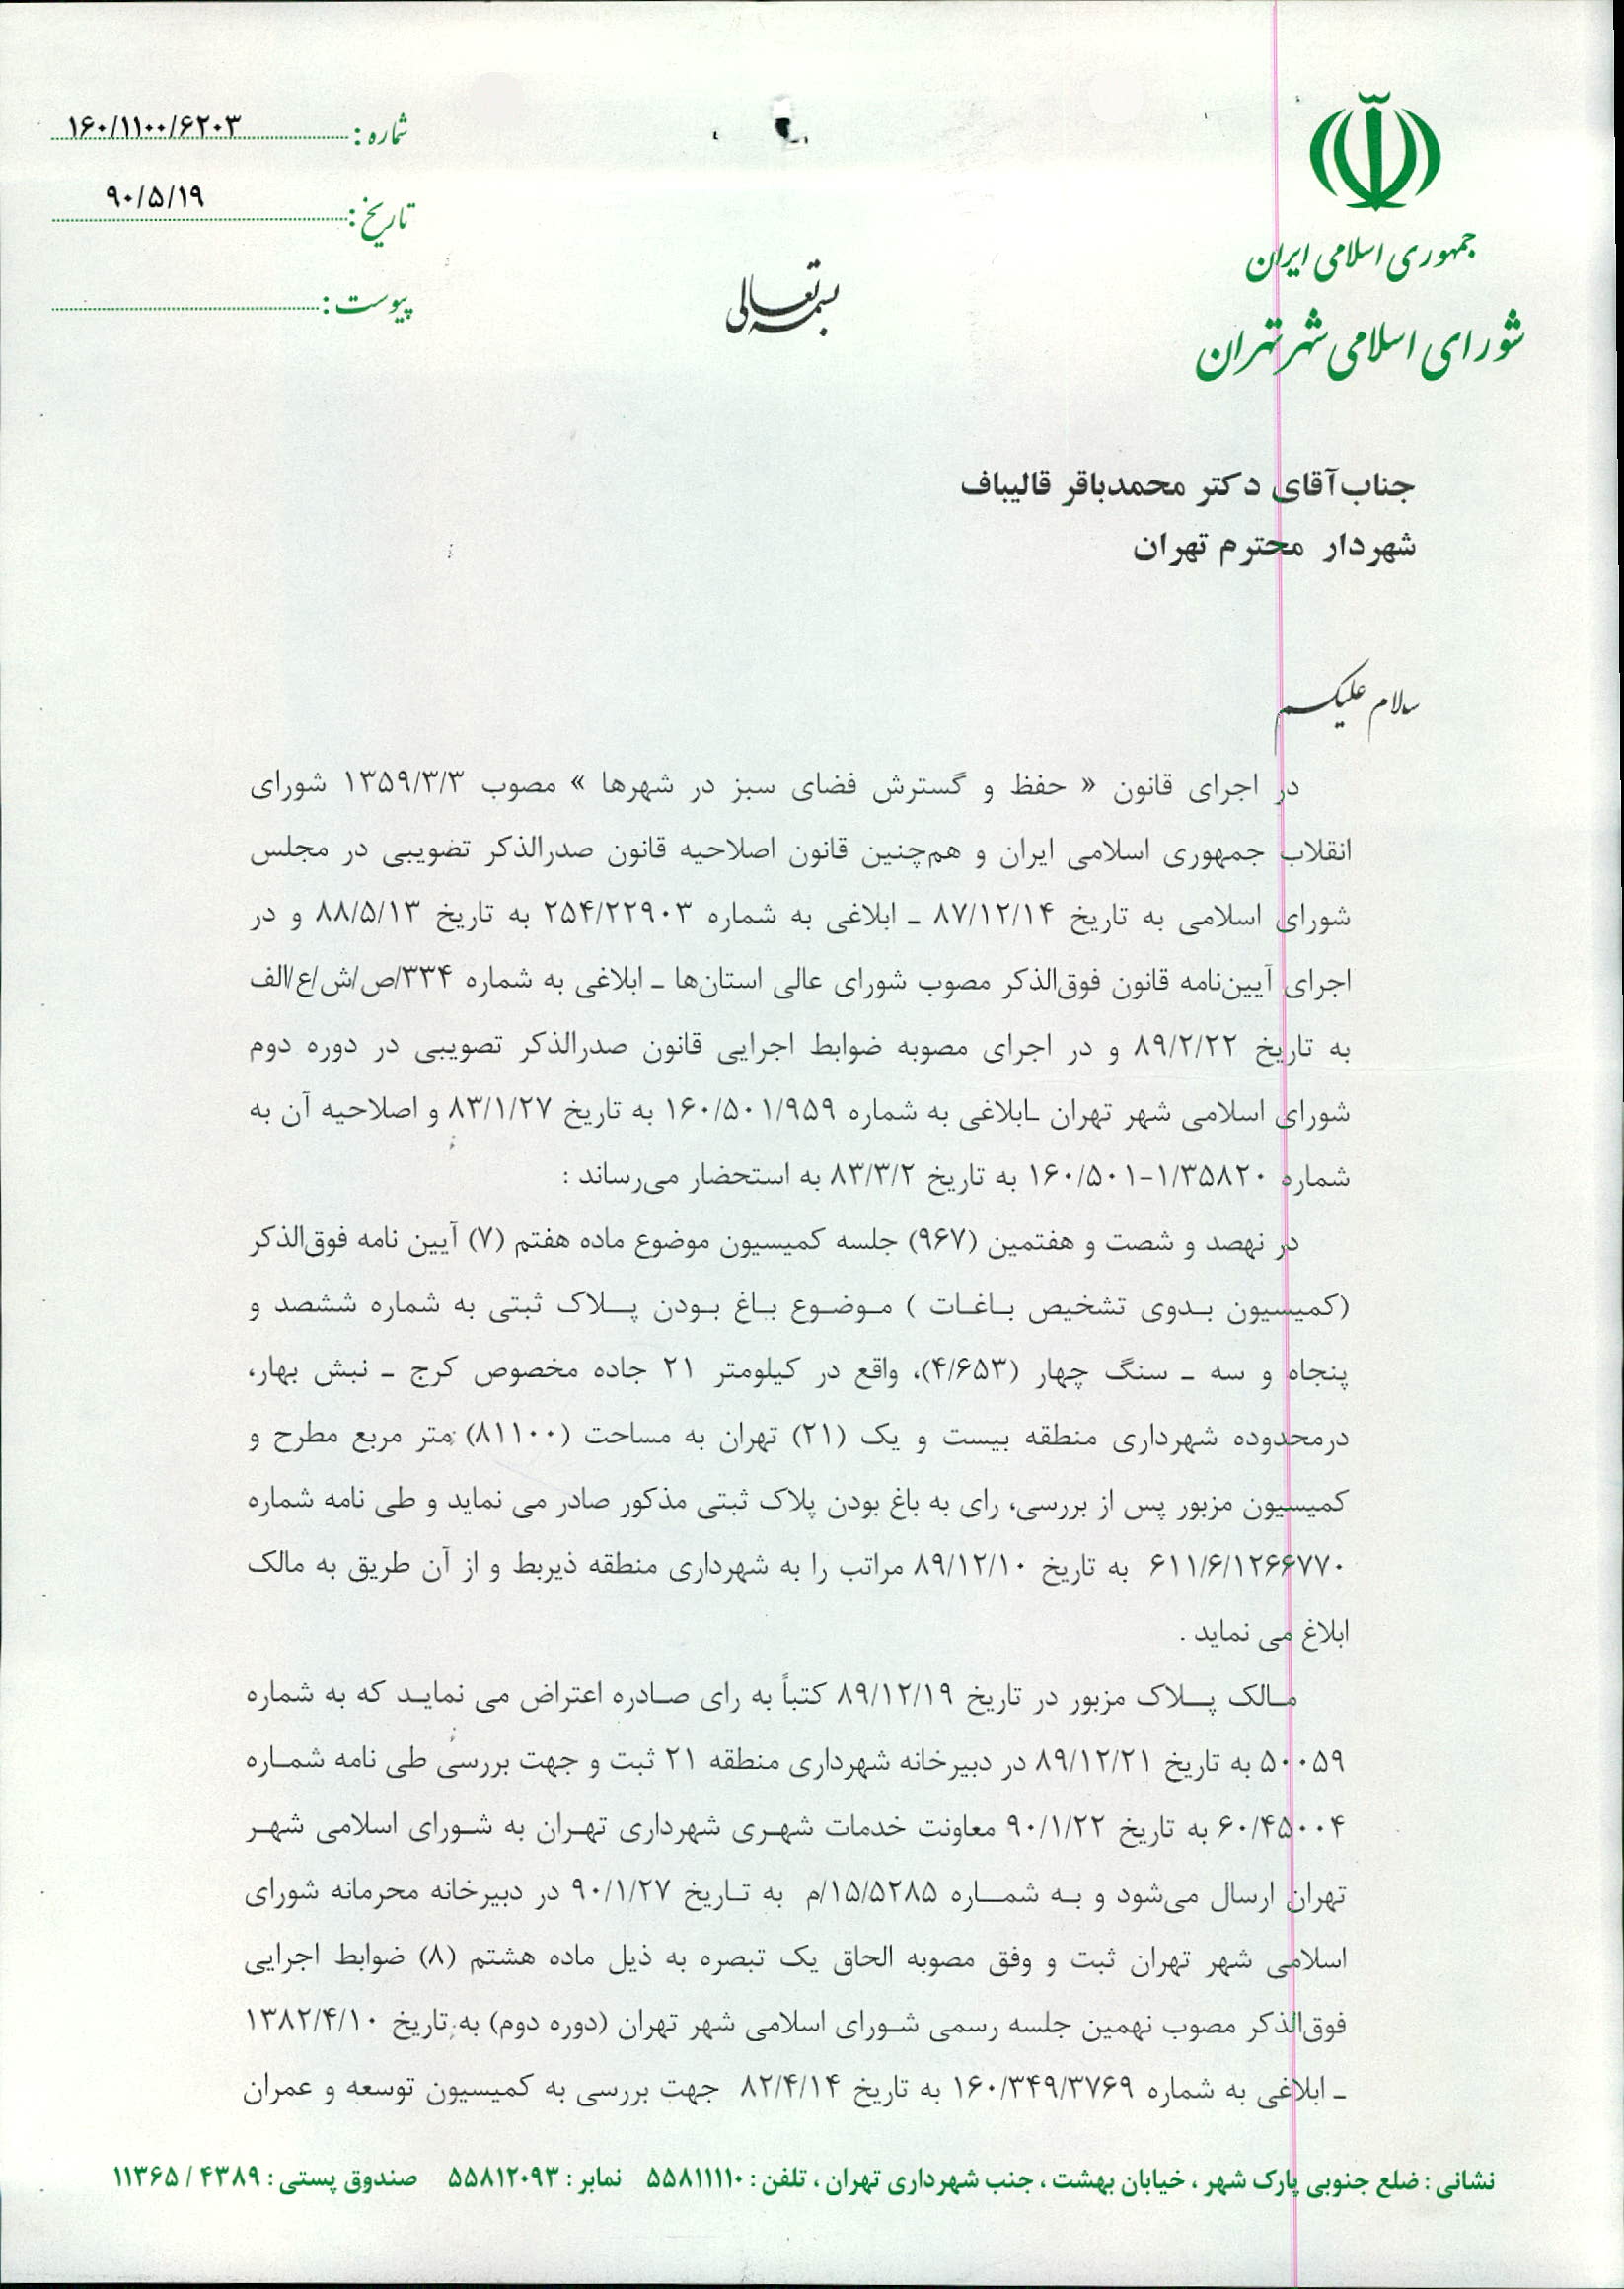 شماره: ۱۶۰/۱۱۰۰/۶۲۰۳
تاریخ: ۹۰/۵/۱۹
پیوست:
بسمه تعالی
جمهوری اسلامی ایران
شورای اسلامی شهر تهران
جناب آقای دکتر محمدباقر قالیباف
شهردار محترم تهران
سلام علیکم
در اجرای قانون « حفظ و گسترش فضای سبز در شهرها » مصوب ۱۳۵۹/۳/۳ شورای
انقلاب جمهوری اسلامی ایران و هم‌چنین قانون اصلاحیه قانون صدرالذکر تصویبی در مجلس
شورای اسلامی به تاریخ ۸۷/۱۲/۱۴ ـ ابلاغی به شماره ۲۵۴/۲۲۹۰۳ به تاریخ ۸۸/۵/۱۳ و در
اجرای آیین‌نامه قانون فوق‌الذکر مصوب شورای عالی استان‌ها ـ ابلاغی به شماره ۳۳۴/ص/ش/ع/الف
به تاریخ ۸۹/۲/۲۲ و در اجرای مصوبه ضوابط اجرایی قانون صدرالذکر تصویبی در دوره دوم
شورای اسلامی شهر تهران ـابلاغی به شماره ۱۶۰/۵۰۱/۹۵۹ به تاریخ ۸۳/۱/۲۷ و اصلاحیه آن به
شماره ۱۶۰/۵۰۱-۱/۳۵۸۲۰ به تاریخ ۸۳/۳/۲ به استحضار می‌رساند :
در نهصد و شصت و هفتمین (۹۶۷) جلسه کمیسیون موضوع ماده هفتم (۷) آیین نامه فوق‌الذکر
(کمیسیون بـدوی تشخیص بـاغـات ) مـوضـوع بـاغ بـودن پـــلاک ثبتی به شماره ششصد و
پنجاه و سه ـ سنگ چهار (۴/۶۵۳)، واقع در کیلومتر ۲۱ جاده مخصوص کرج ـ نبش بهار،
درمحدوده شهرداری منطقه بیست و یک (۲۱) تهران به مساحت (۸۱۱۰۰) متر مربع مطرح و
کمیسیون مزبور پس از بررسی، رای به باغ بودن پلاک ثبتی مذکور صادر می نماید و طی نامه شماره
۶۱۱/۶/۱۲۶۶۷۷۰ به تاریخ ۸۹/۱۲/۱۰ مراتب را به شهرداری منطقه ذیربط و از آن طریق به مالک
ابلاغ می نماید .
مـالک پـــلاک مزبور در تاریخ ۸۹/۱۲/۱۹ کتباً به رای صـادره اعتراض می نمایـد که به شماره
۵۰۰۵۹ به تاریخ ۸۹/۱۲/۲۱ در دبیرخانه شهرداری منطقه ۲۱ ثبت و جهت بررسی طی نامه شمـاره
۶۰/۴۵۰۰۴ به تاریخ ۹۰/۱/۲۲ معاونت خدمات شهـری شهرداری تهـران به شـورای اسلامی شهـر
تهران ارسال می‌شود و بـه شمـــاره ۱۵/۵۲۸۵/م به تـاریخ ۹۰/۱/۲۷ در دبیرخانه محرمانه شورای
اسلامی شهر تهران ثبت و وفق مصوبه الحاق یک تبصره به ذیل ماده هشتم (۸) ضوابط اجرایی
فوق‌الذکر مصوب نهمین جلسه رسمی شـورای اسلامی شهر تهران (دوره دوم) به تاریخ ۱۳۸۲/۴/۱۰
ـ ابلاغی به شماره ۱۶۰/۳۴۹/۳۷۶۹ به تاریخ ۸۲/۴/۱۴ جهت بررسی به کمیسیون توسعه و عمران
نشانی : ضلع جنوبی پارک شهر ، خیابان بهشت ، جنب شهرداری تهران ، تلفن : ۵۵۸۱۱۱۱۰ نمابر : ۵۵۸۱۲۰۹۳ صندوق پستی : ۴۳۸۹ / ۱۱۳۶۵